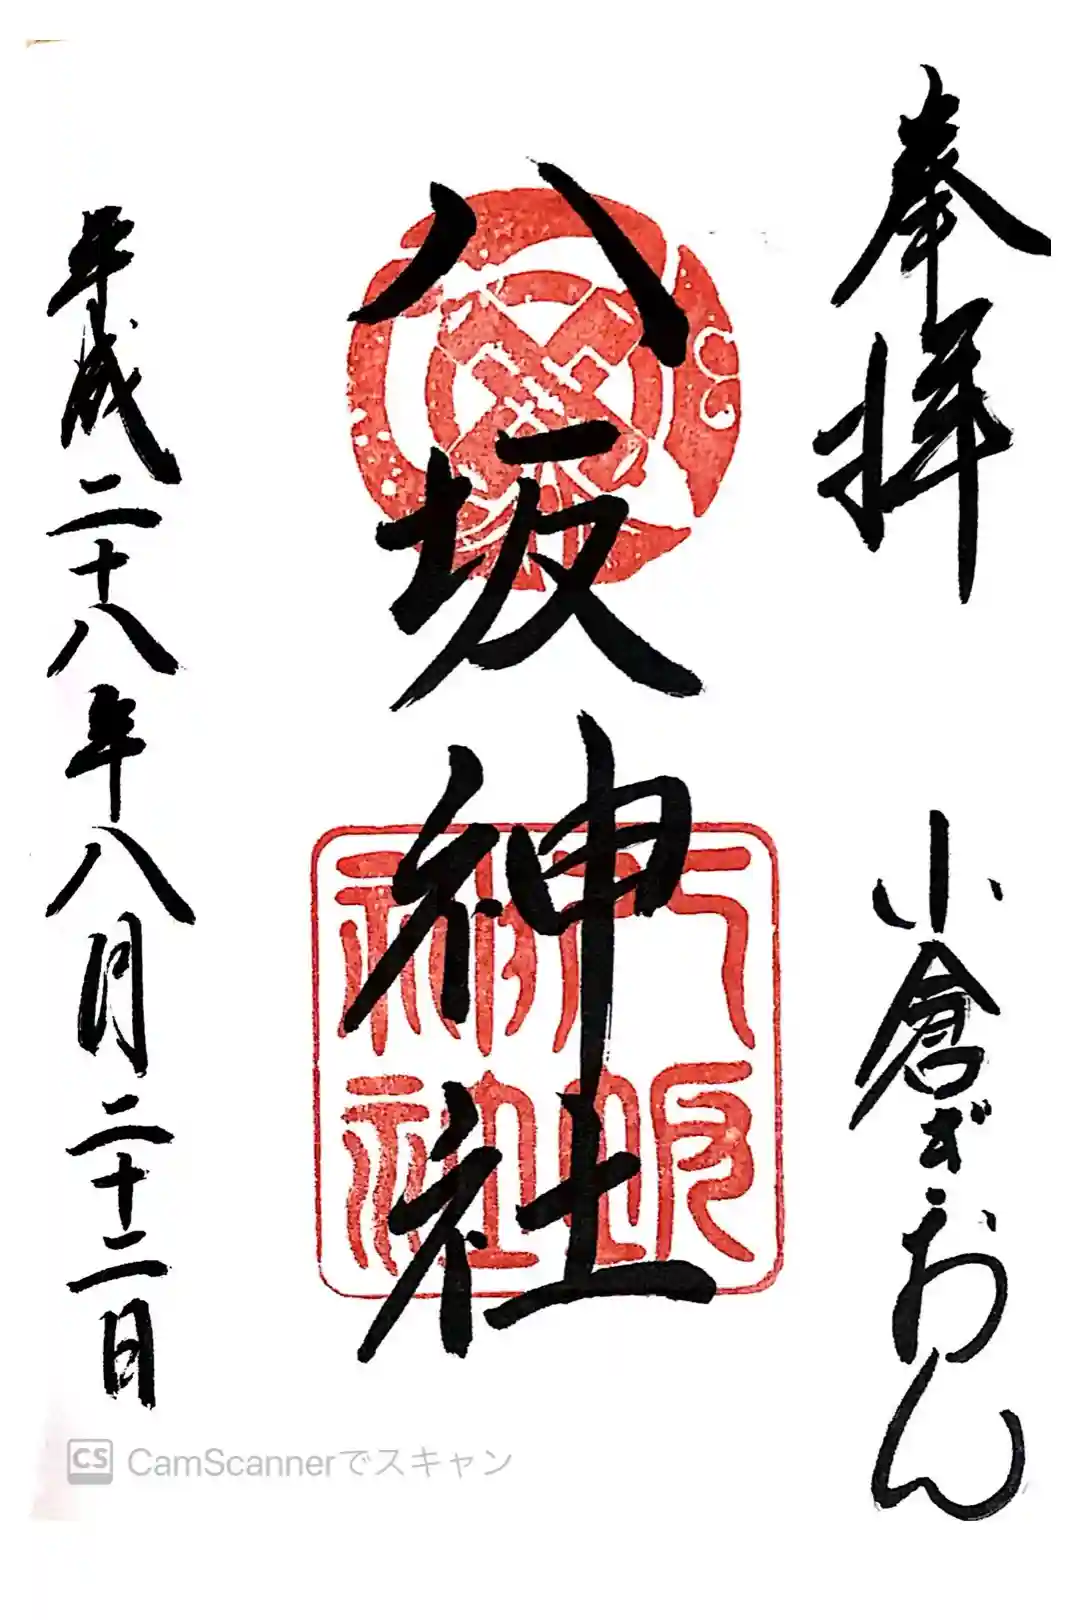 奉拝
小倉ぎおん
八坂神社
八坂
神社
平成二十八年八月二十二日
CS CamScannerでスキャン